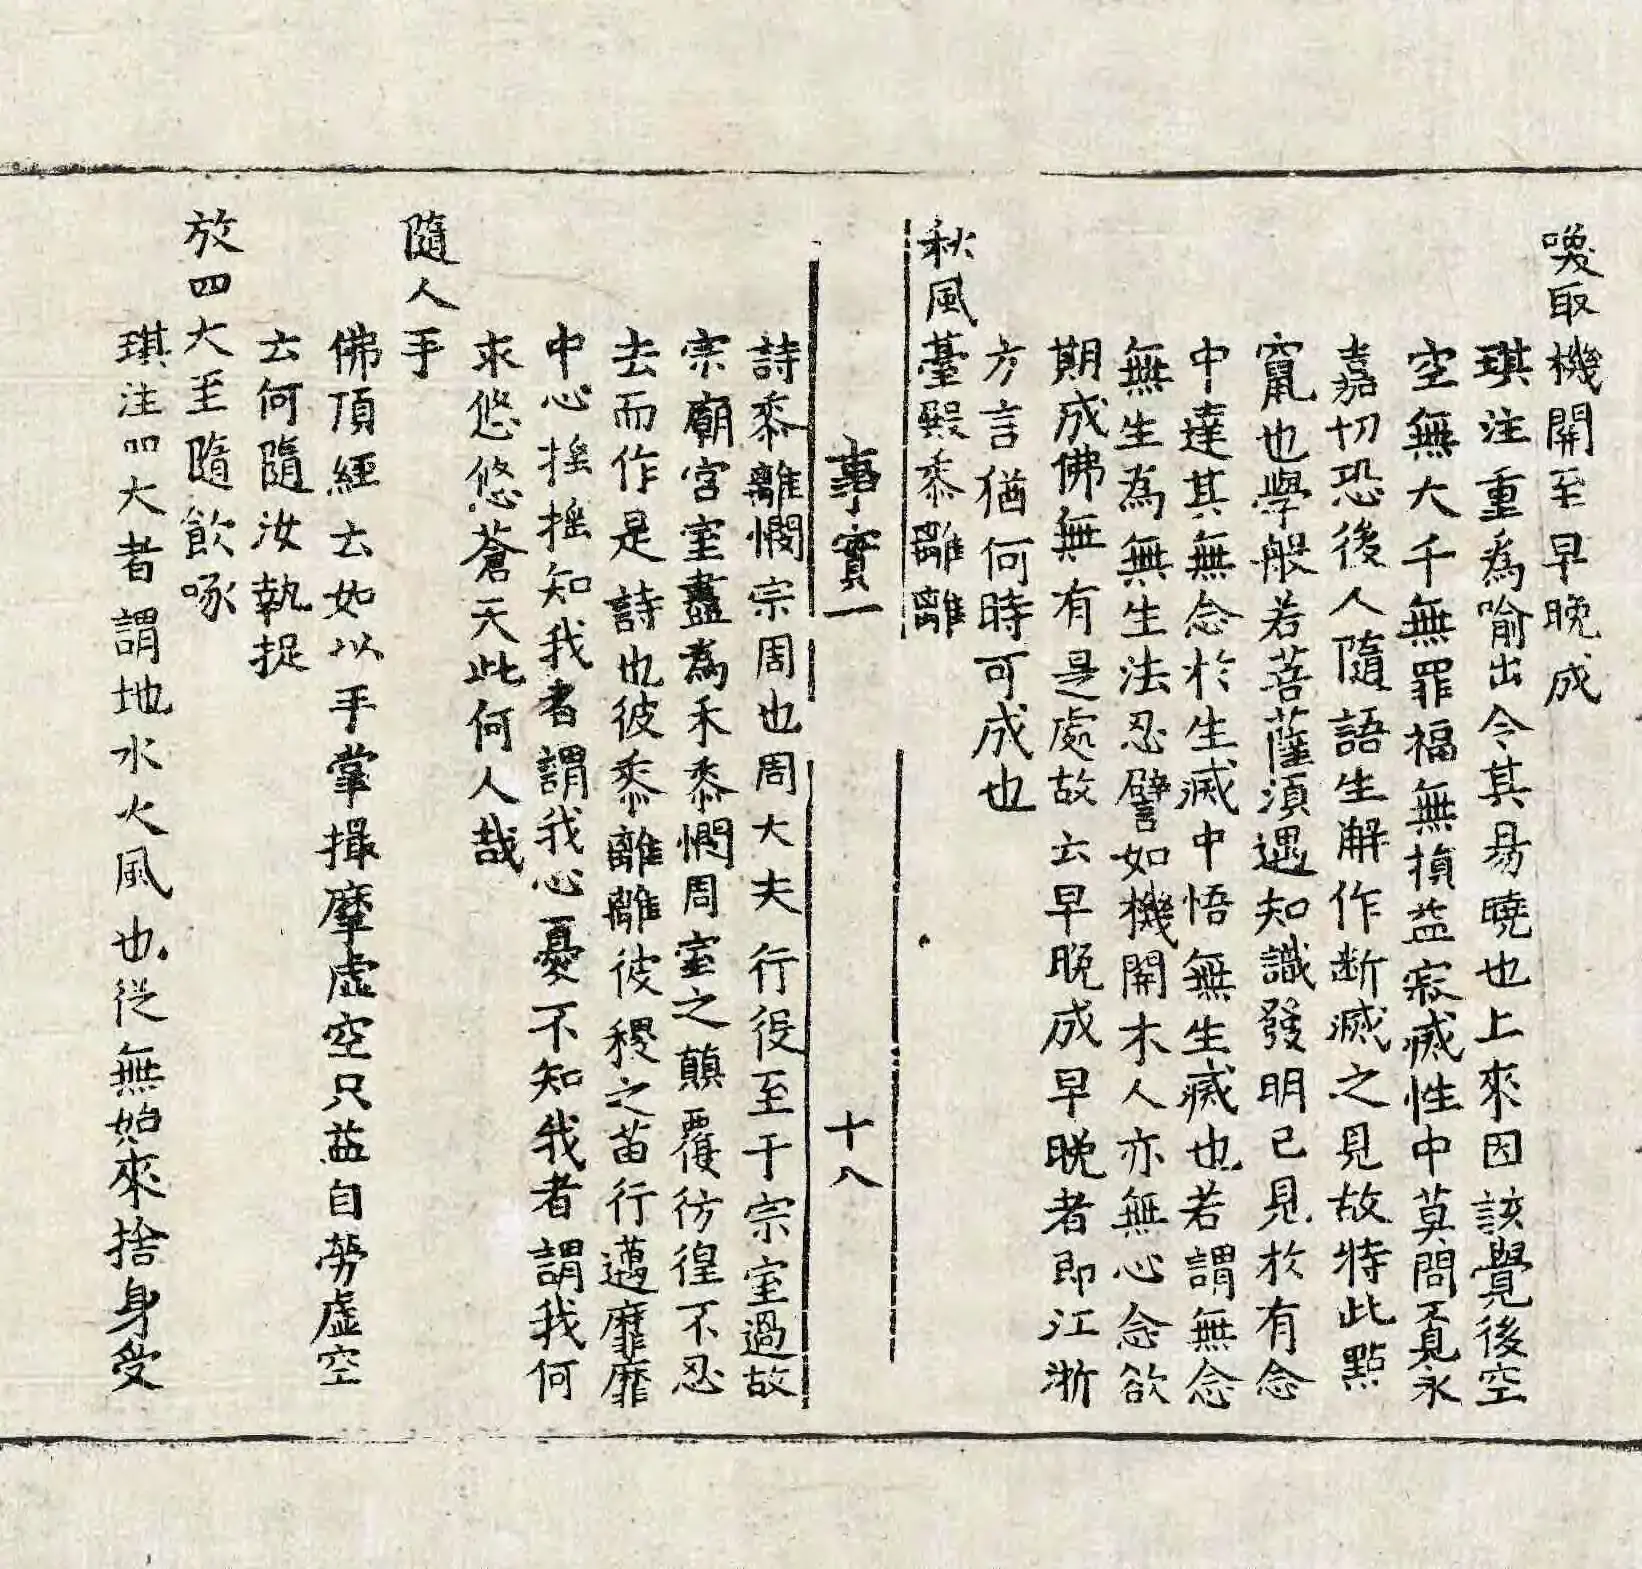 喚取機関至早晚成
琪注重為喻出令其易曉也上來因該覺後空
空無大千無罪福無損益寂滅性中莫問覓永
嘉切恐後人隨語生解作断滅之見故特此點
竄也學般若菩薩須遇知識發明已見於有念
中達其無念於生滅中悟無生滅也若謂無念
無生為無生法忍譬如機関木人亦無心念欲
期成佛無有是處故云早晚成早晚者即江浙
方言猶何時可成也
秋風臺殿黍離離
事實一
十八
詩黍離憫宗周也周大夫行役至于宗室過故
宗廟宮室盡為禾黍憫周室之顛覆彷徨不忍
去而作是詩也彼黍離離彼稷之苗行邁靡靡
中心搖搖知我者謂我心憂不知我者謂我何
求悠悠蒼天此何人哉
隨人手
佛頂經云如以手掌撮摩虛空只益自勞虛空
云何隨汝執捉
放四大至隨飲啄
琪注四大者謂地水火風也從無始來捨身受